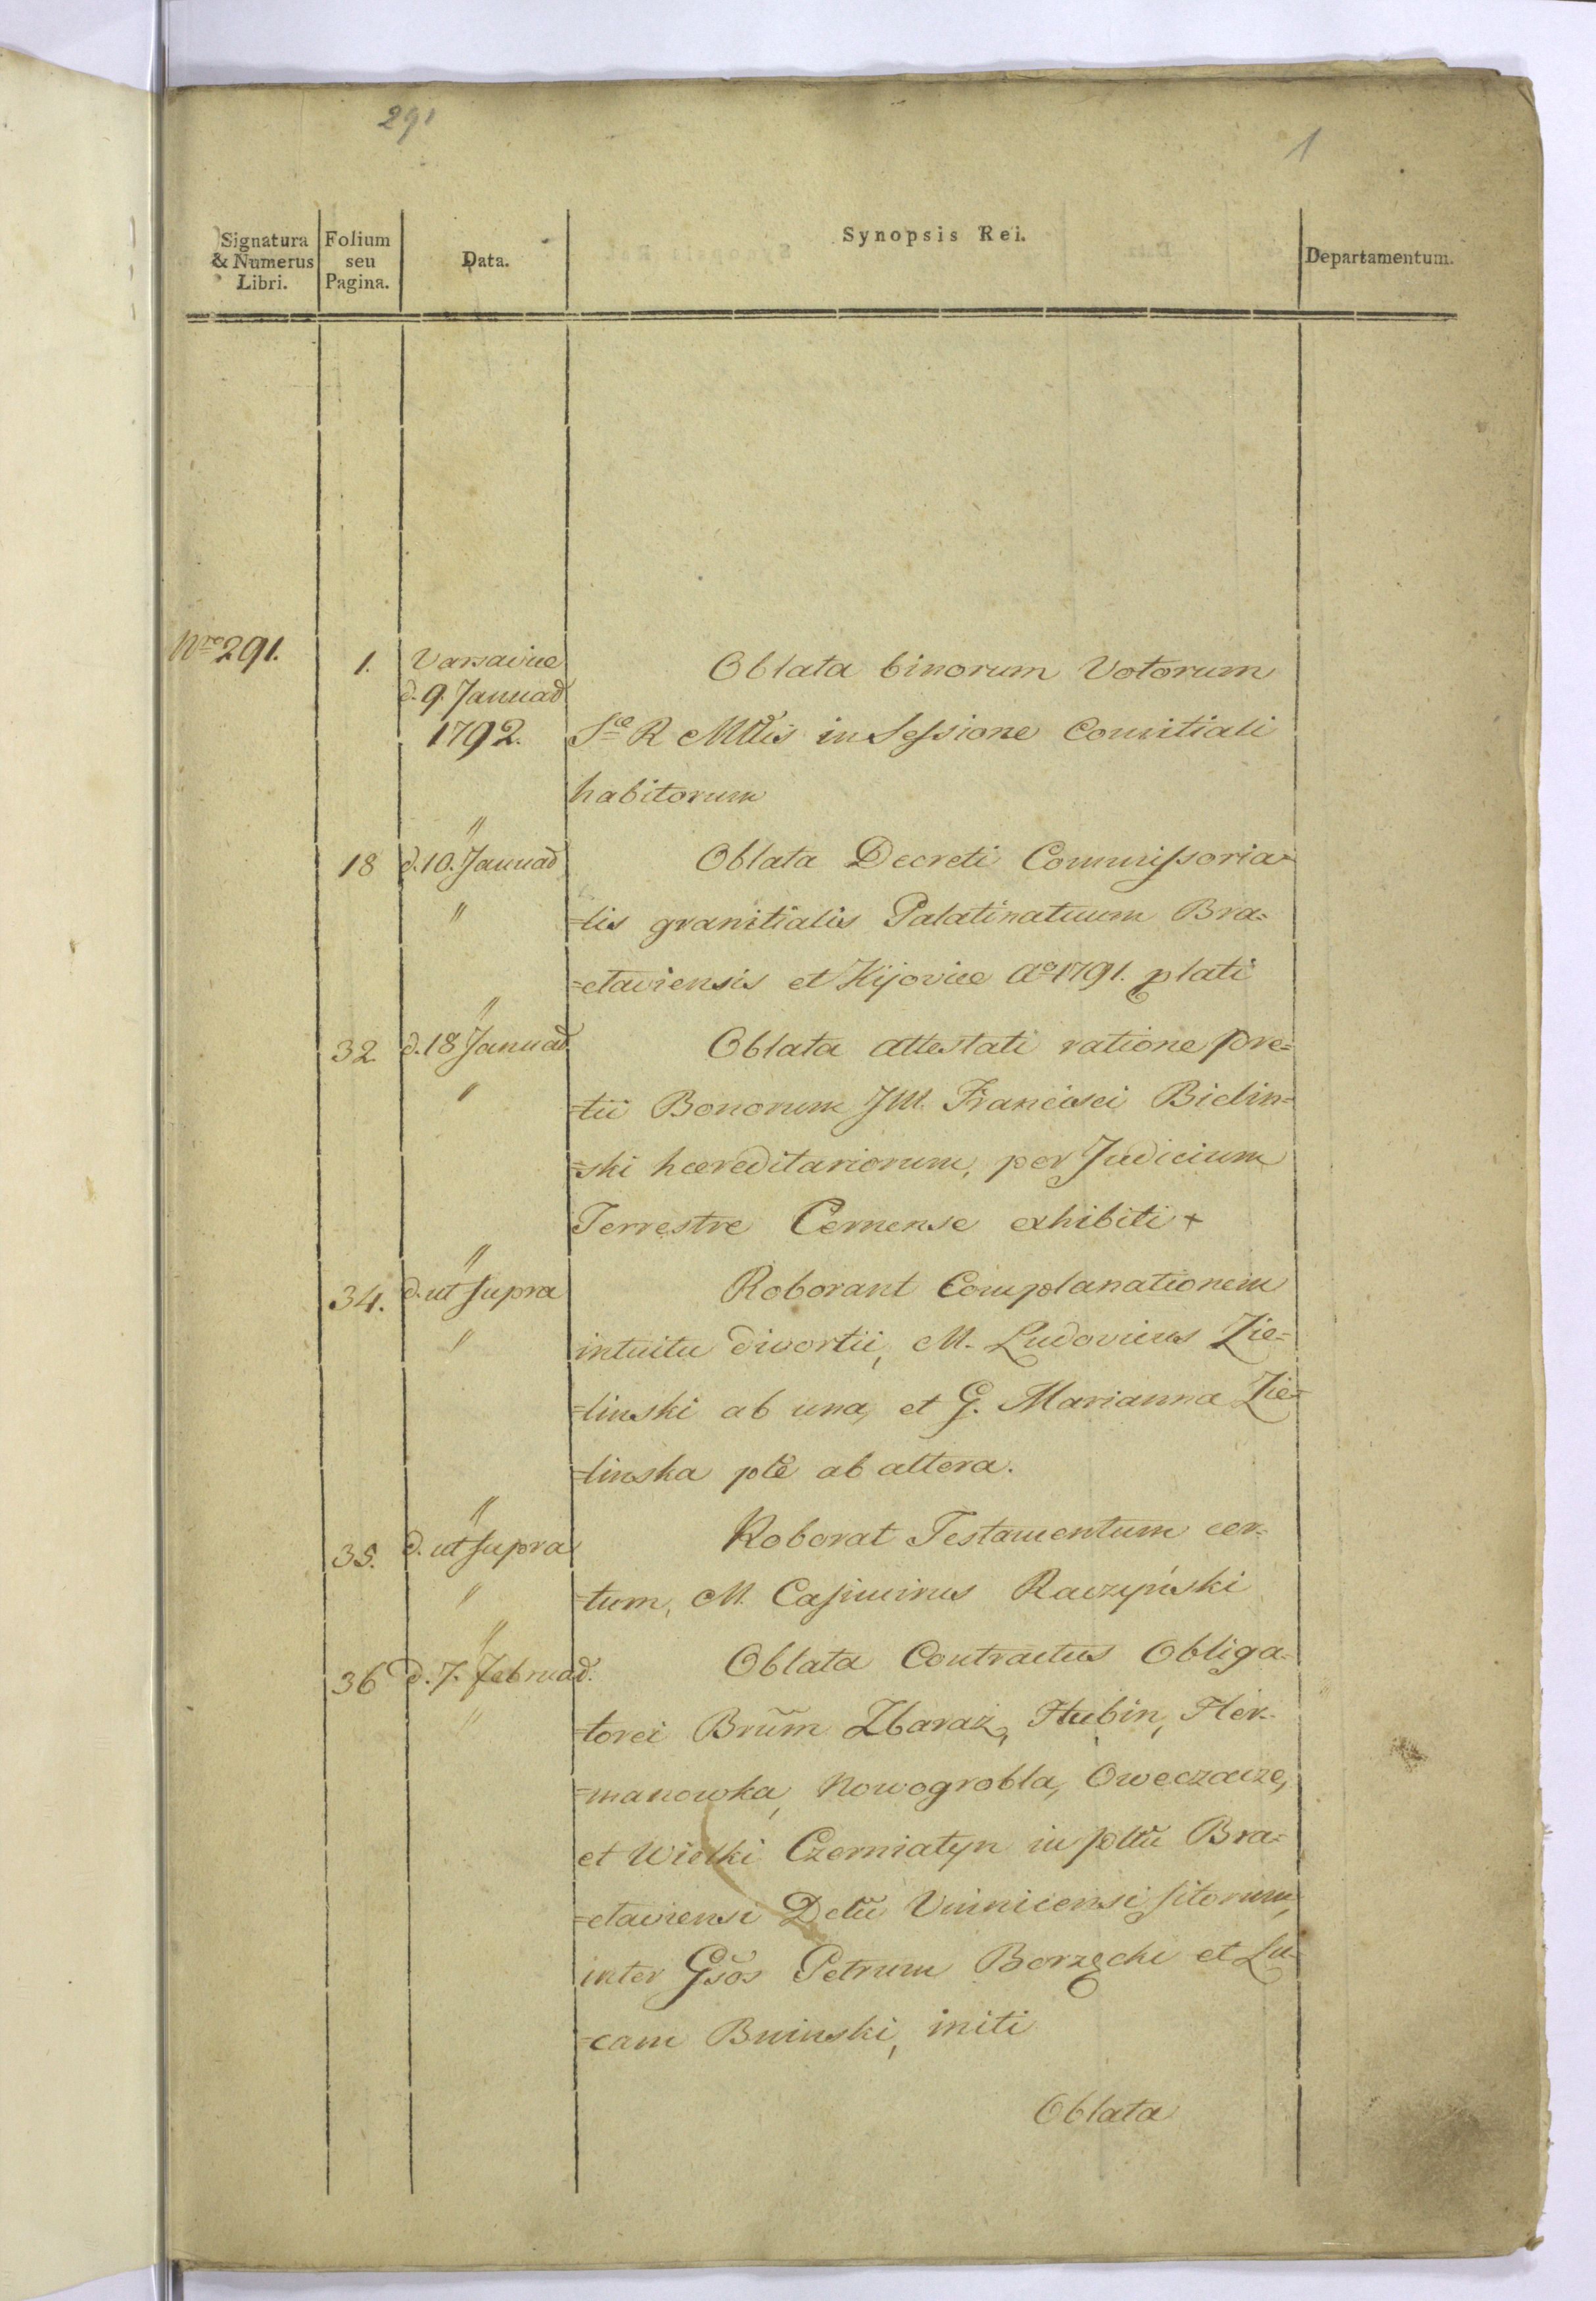 291
1
Signatura & Numerus Libri.
Folium seu Pagina.
Data.
Synopsis Rei.
Departamentum.
Nro 291.
1. Varsaviae Oblata binorum Votorum
d. 9. Januad
1792. Sae R Mttis in Sessione Comitiali
habitorum
"
18 d. 10. Januad Oblata Decreti Commissoria=
" =lis granitialis Palatinatuum Bra=
=claviensis et Kijoviae Ao 1791. plati
"
32 d. 18 Januad Oblata attestati ratione pre=
" =tii Bonorum JM. Francisci Bielin=
=ski haereditariorum, per Judicium
Terrestre Cernense exhibiti +
"
34. d. ut supra Roborant Complanationem
" intuitu divortii, M. Ludovicus Zie=
=linski ab una, et G. Marianna Zie=
=linska pte ab altera.
"
35. d. ut supra Roborat Testamentum cer=
" =tum, M. Casimirus Raczyński
"
36 d. 7. februad. Oblata Contractus Obliga=
" =torei Brum Zbaraż, Hubin, Her=
=manowka, Nowogrobla, Oweczacze,
et Wielki Czerniatyn in pltu Bra=
=claviensi Dctu Vinnicensi sitorum,
inter Gsos Petrum Borzęcki et Lu=
=cam Bninski, initi
Oblata